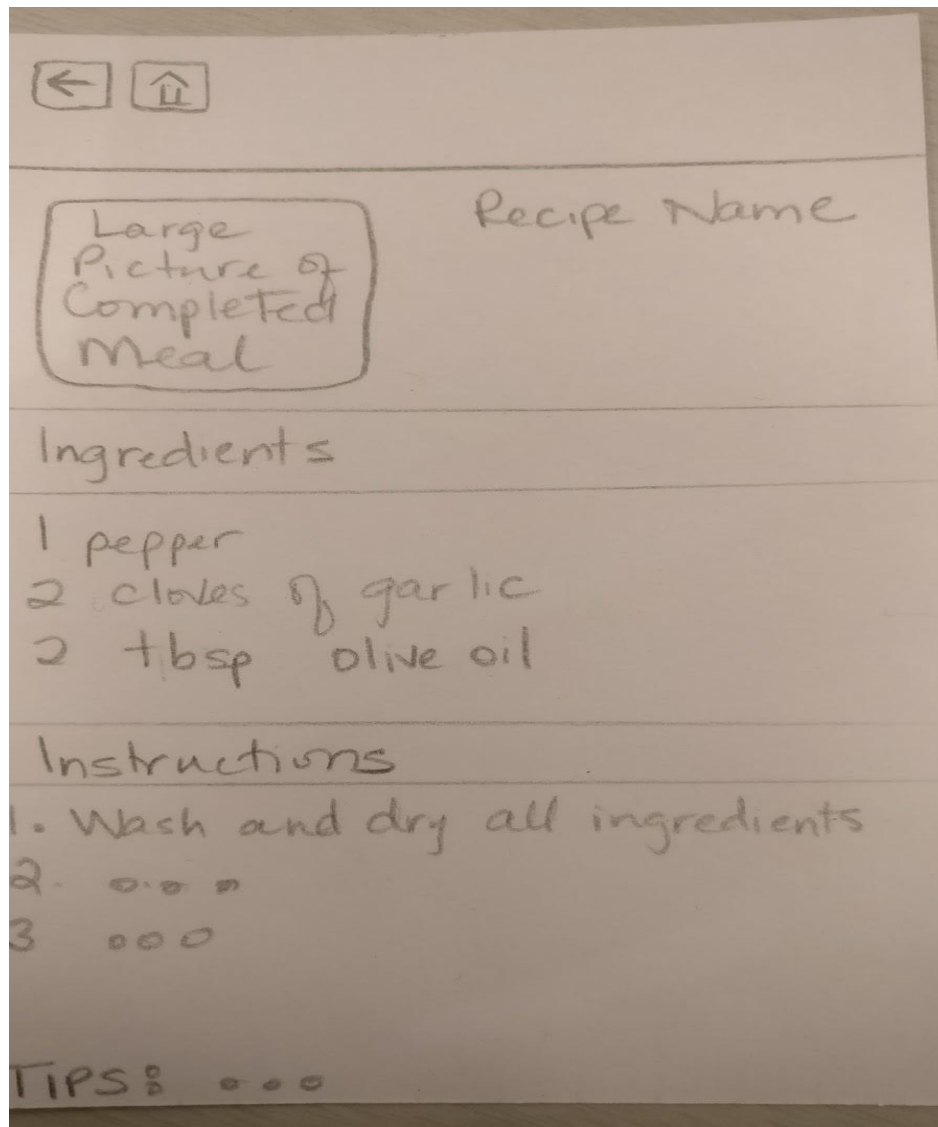 Large
Picture of
Completed
Meal
Recipe Name
Ingredients
1 pepper
2 cloves of garlic
2 tbsp olive oil
Instructions
1. Wash and dry all ingredients
2. ...
3 ...
TIPS: ...